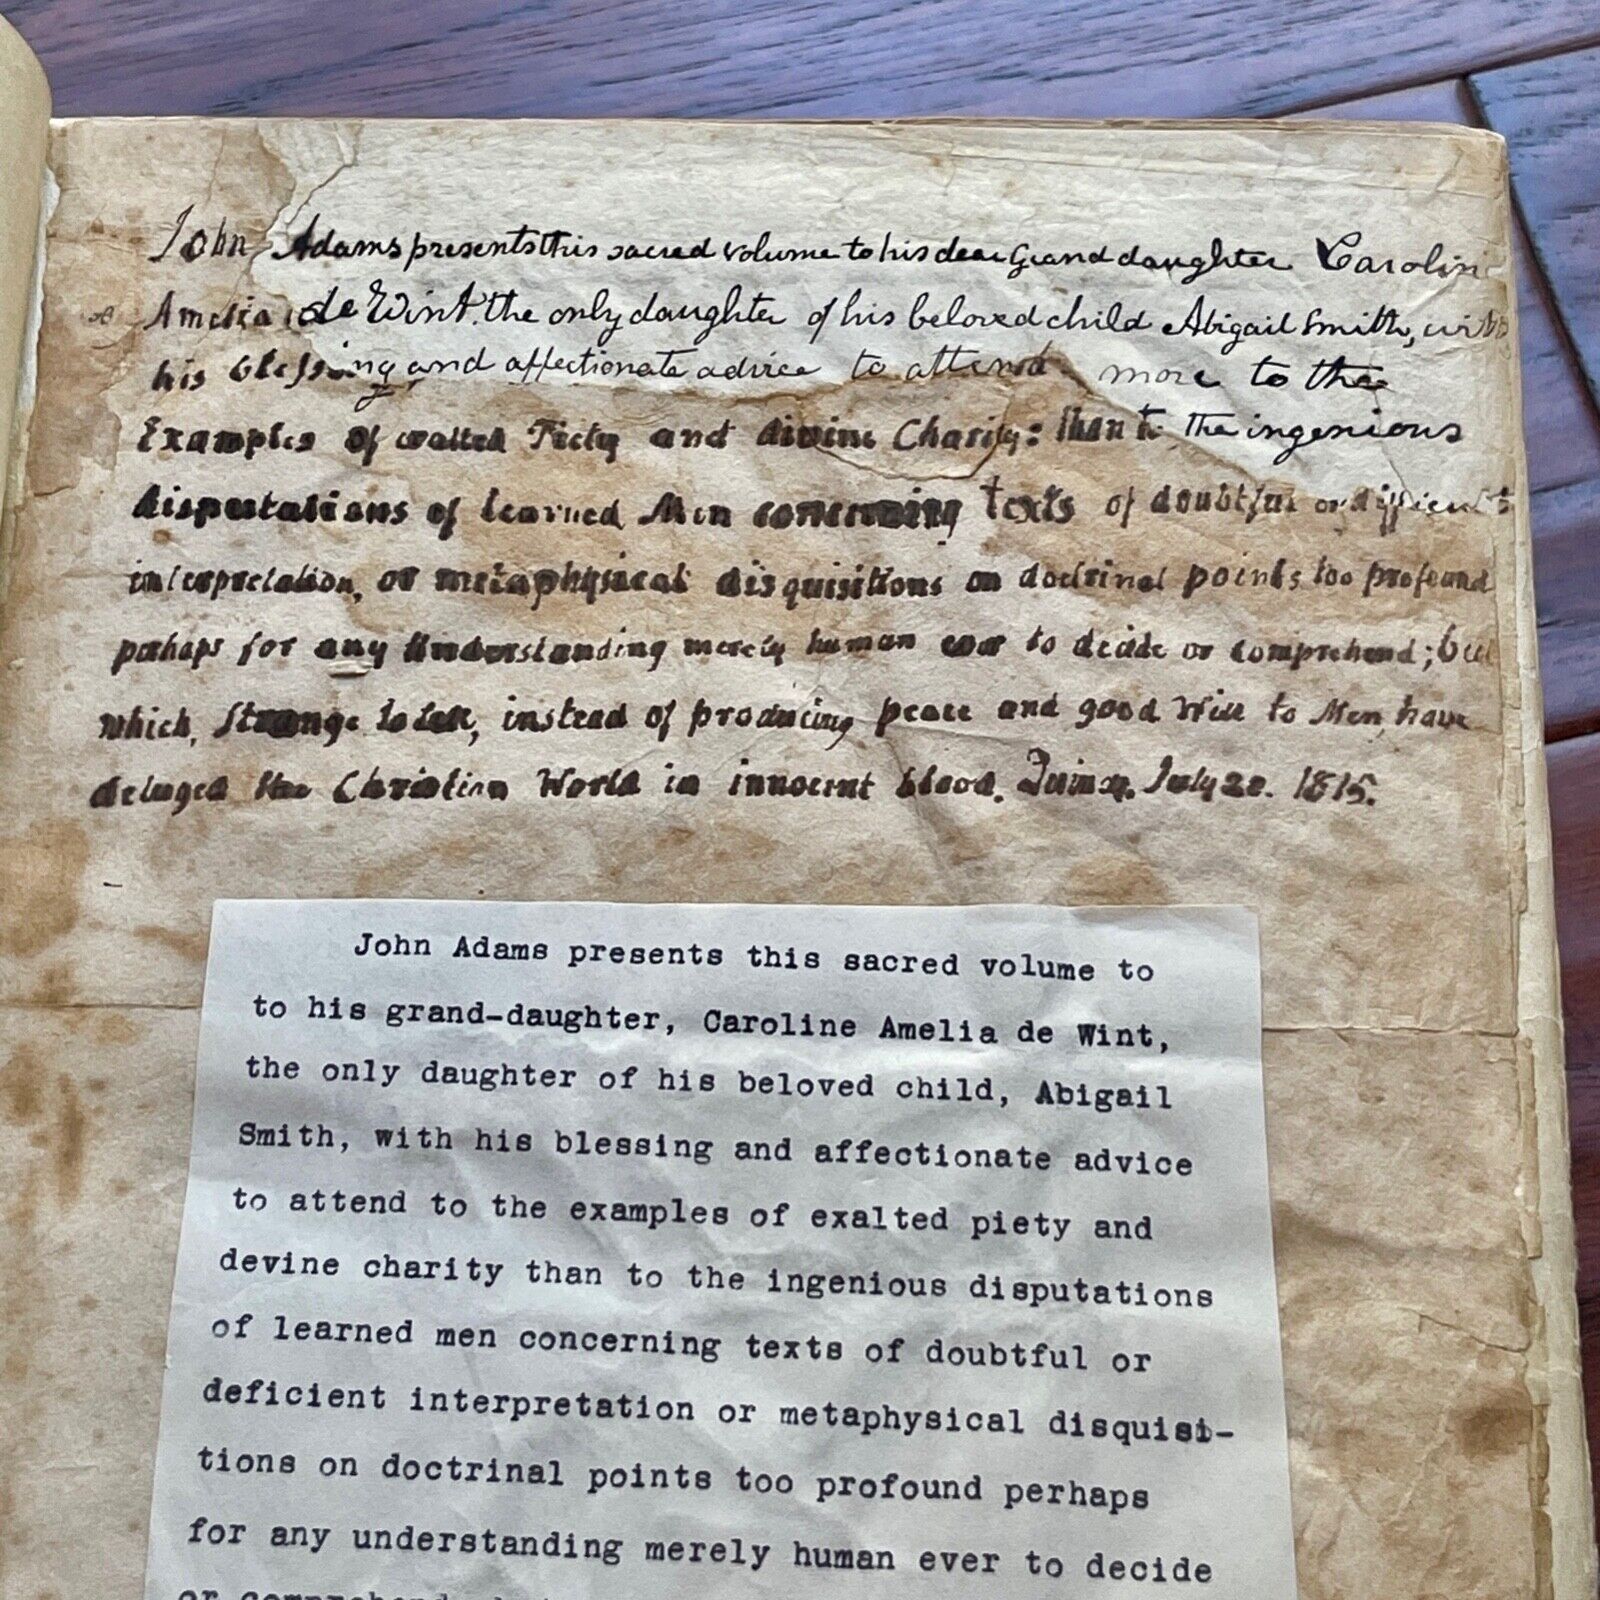 John Adams presents this sacred volume to his dear Grand daughter Carolin
Amelia de Wint. the only daughter of his beloved child Abigail Smith, with
his blessing and affectionate advice to attend more to the
Examples of exalted Piety and divine Charity: than to the ingenious
disputations of learned Men concerning texts of doubtful or difficult
interpretation, or metaphysical disquisitions on doctrinal points too profound
perhaps for any Understanding merely human ever to decide or comprehend; but
which, Strange to tell, instead of producing peace and good Will to Men, have
deluged the Christian World in innocent blood. Quincy. July 20. 1815.
John Adams presents this sacred volume to
to his grand-daughter, Caroline Amelia de Wint,
the only daughter of his beloved child, Abigail
Smith, with his blessing and affectionate advice
to attend to the examples of exalted piety and
devine charity than to the ingenious disputations
of learned men concerning texts of doubtful or
deficient interpretation or metaphysical disquisi-
tions on doctrinal points too profound perhaps
for any understanding merely human ever to decide